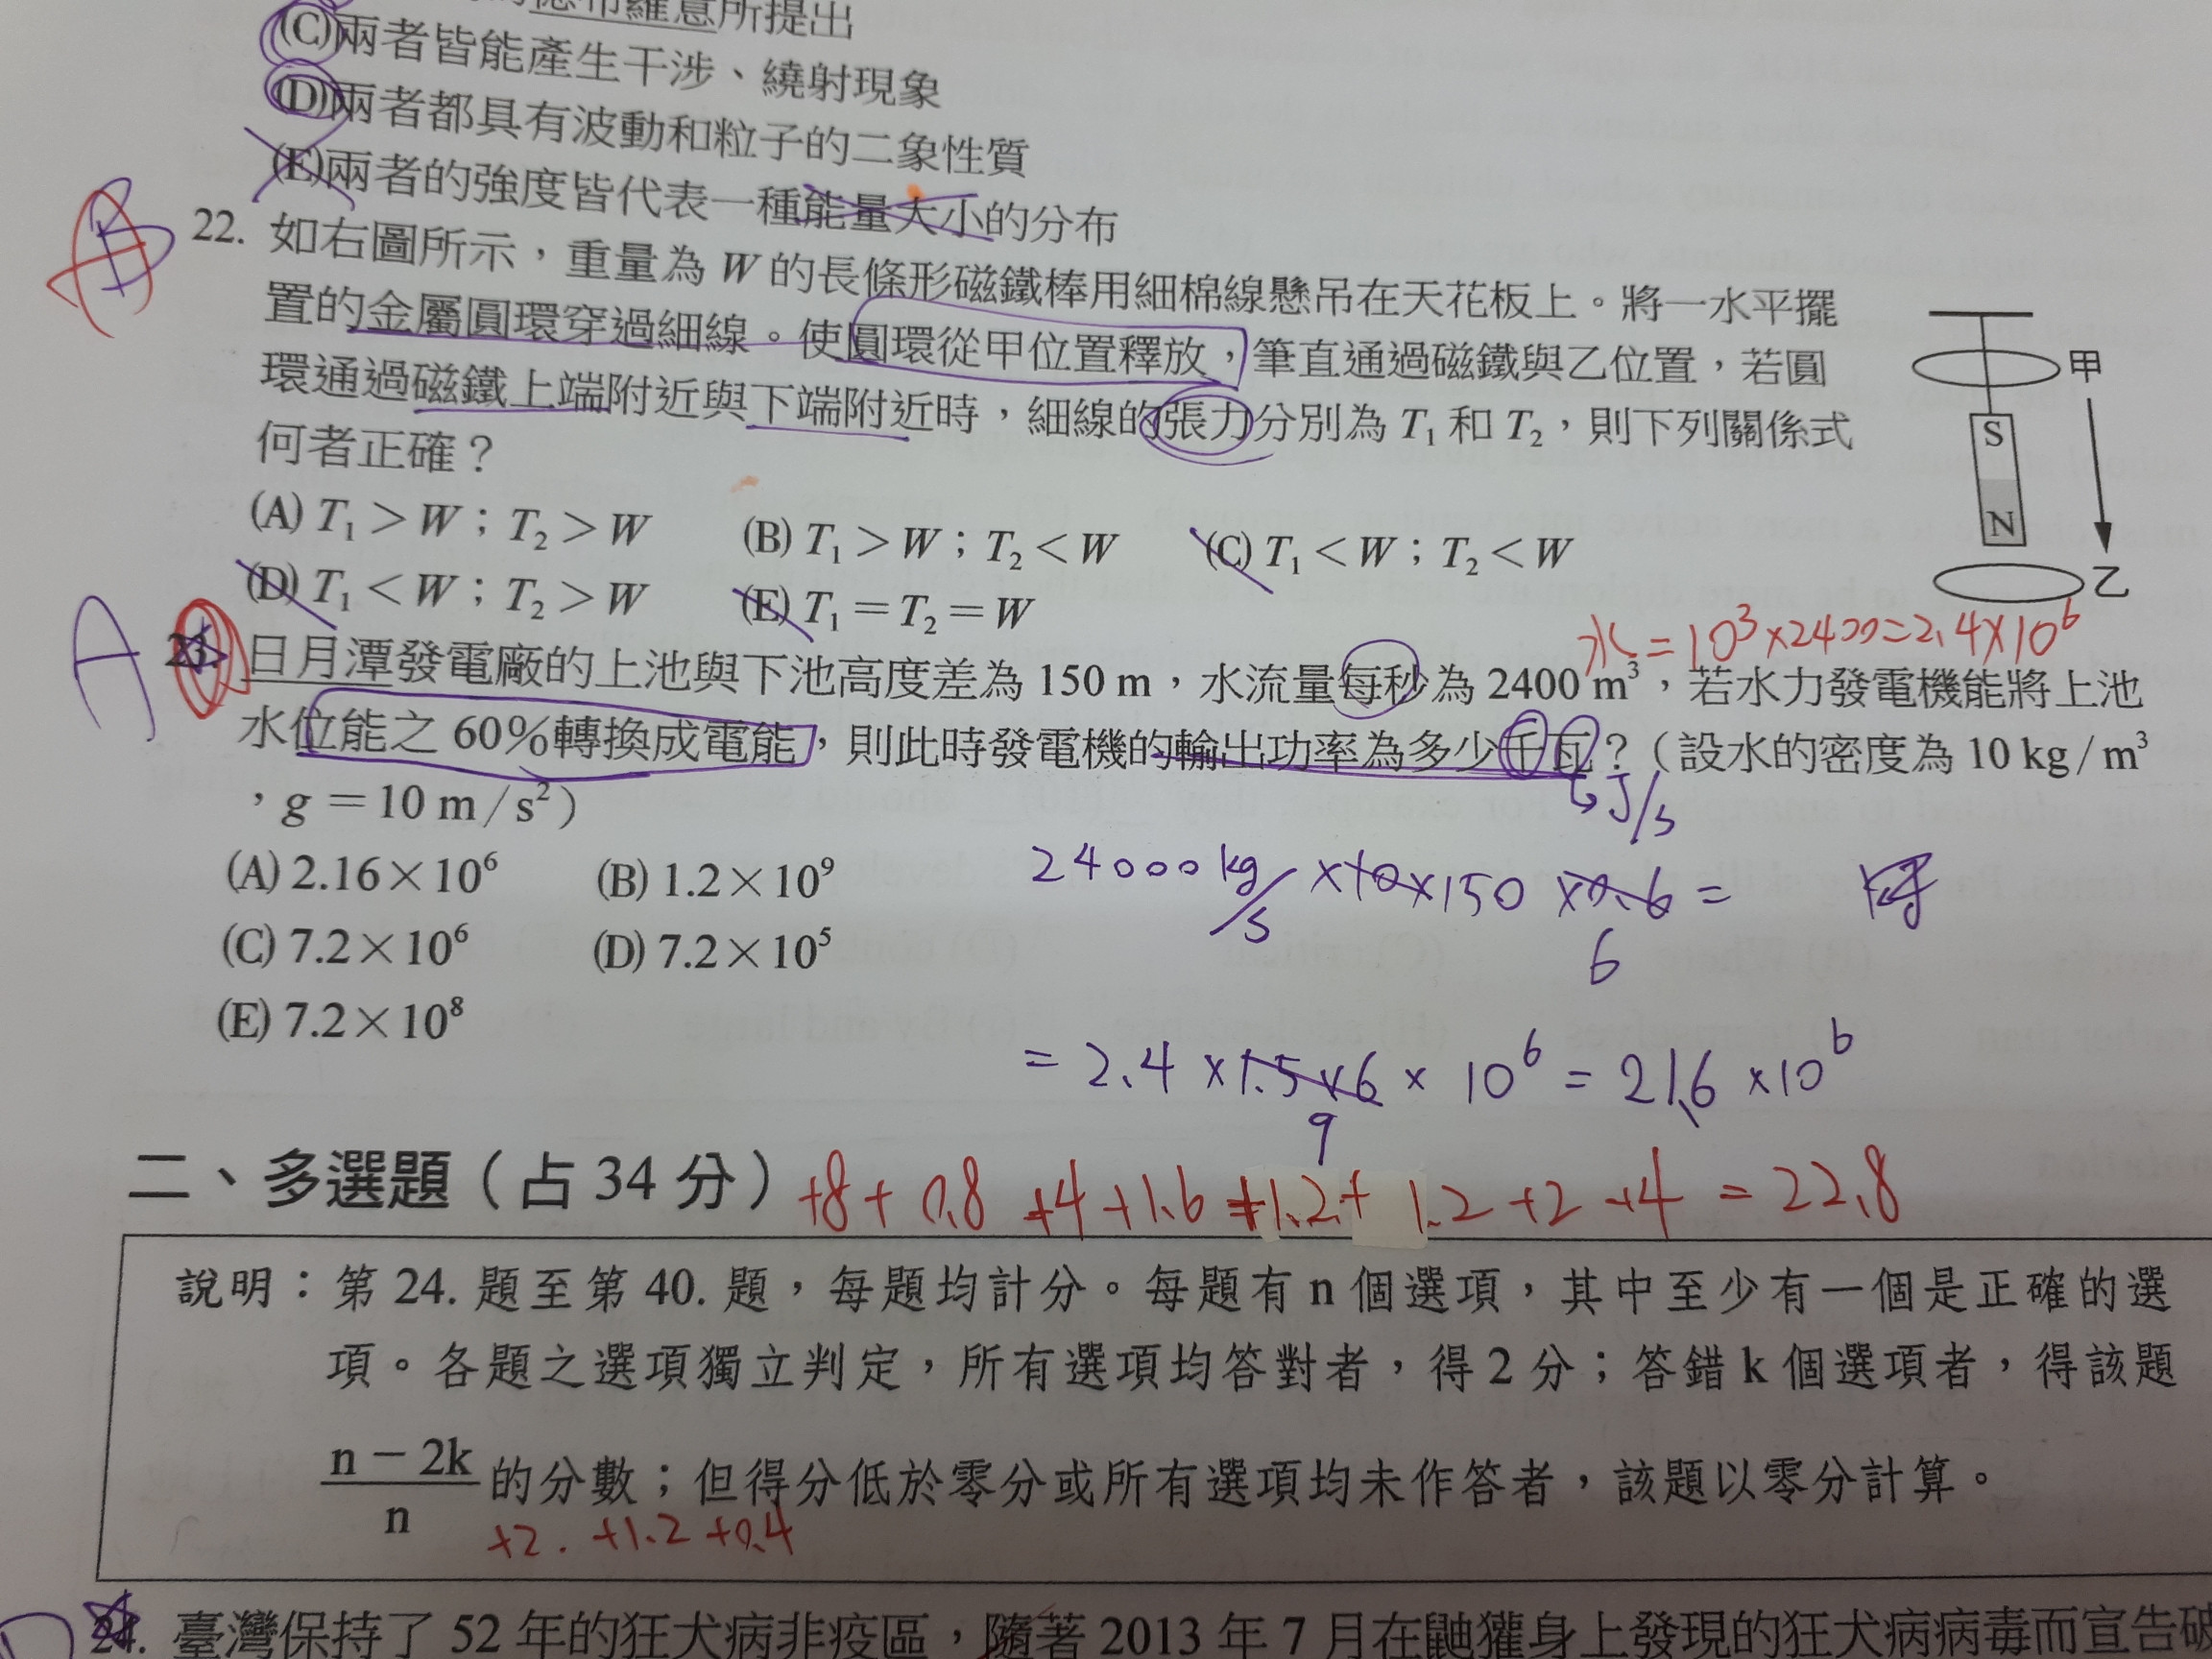 德布羅意所提出
(C)兩者皆能產生干涉、繞射現象
(D)兩者都具有波動和粒子的二象性質
(E)兩者的強度皆代表一種能量大小的分布
B
A
22. 如右圖所示，重量為 W 的長條形磁鐵棒用細棉線懸吊在天花板上。將一水平擺
置的金屬圓環穿過細線。使圓環從甲位置釋放，筆直通過磁鐵與乙位置，若圓
環通過磁鐵上端附近與下端附近時，細線的張力分別為 T₁ 和 T₂，則下列關係式
何者正確？
甲
S
N
乙
(A) T₁ > W；T₂ > W (B) T₁ > W；T₂ < W (C) T₁ < W；T₂ < W
(D) T₁ < W；T₂ > W (E) T₁ = T₂ = W
水 = 10³×2400=2.4×10⁶
A
23. 日月潭發電廠的上池與下池高度差為 150 m，水流量每秒為 2400 m³，若水力發電機能將上池
水位能之 60%轉換成電能，則此時發電機的輸出功率為多少千瓦？（設水的密度為 10 kg/m³
，g＝10 m/s²）
↳ J/s
(A) 2.16×10⁶ (B) 1.2×10⁹
(C) 7.2×10⁶ (D) 7.2×10⁵
(E) 7.2×10⁸
24000 kg/s ×10×150 ×0.6 =
6
= 2.4 ×1.5×6 × 10⁶ = 21.6 ×10⁶
9
二、多選題（占 34 分）
+8+ 0.8 +4+1.6 +1.2+ 1.2 +2 +4 = 22.8
說明：第 24. 題至第 40. 題，每題均計分。每題有 n 個選項，其中至少有一個是正確的選
項。各題之選項獨立判定，所有選項均答對者，得 2 分；答錯 k 個選項者，得該題
n－2k
n
的分數；但得分低於零分或所有選項均未作答者，該題以零分計算。
+2. +1.2 +0.4
24. 臺灣保持了 52 年的狂犬病非疫區，隨著 2013 年 7 月在鼬獾身上發現的狂犬病病毒而宣告破